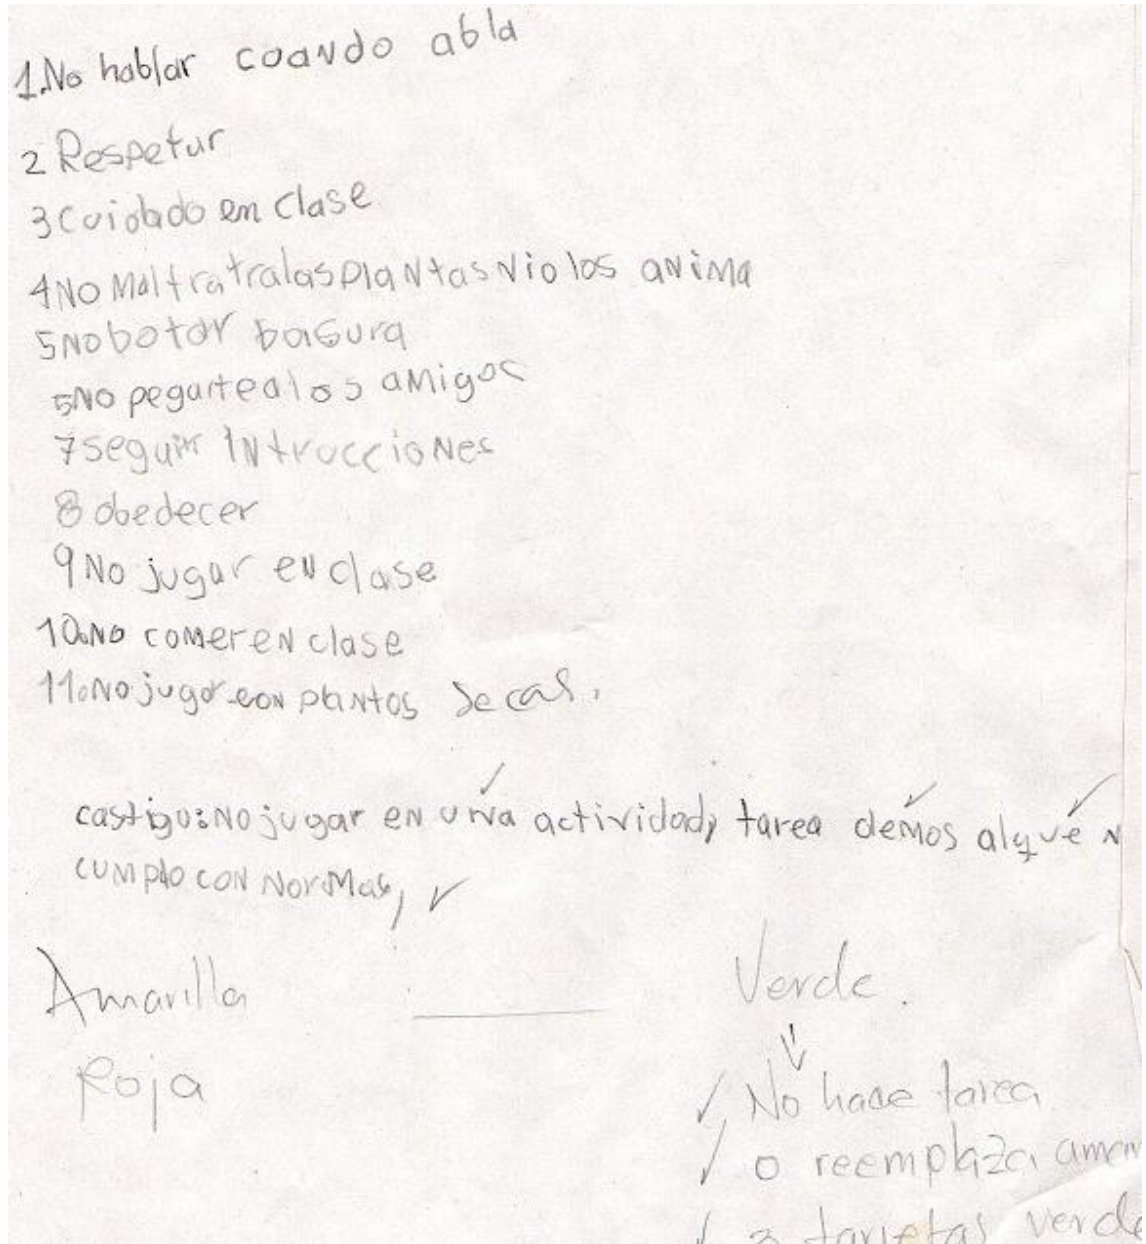 1.No hablar coando abla
2 Respetar
3 Cuidado en clase
4 No Maltratralas plantas nio los anima
5 No botar basura
5 No pegarte a los amigos
7 Seguir intrucciones
8 obedecer
9 No jugar en clase
10. No comer en clase
11. No jugar con plantas secas.
castigo: No jugar en una actividad, tarea démos alqué n
cumplo con Normas,
Amarilla
Verde.
Roja
No hace tarea
o reemplaza amar
3 tarjetas verde